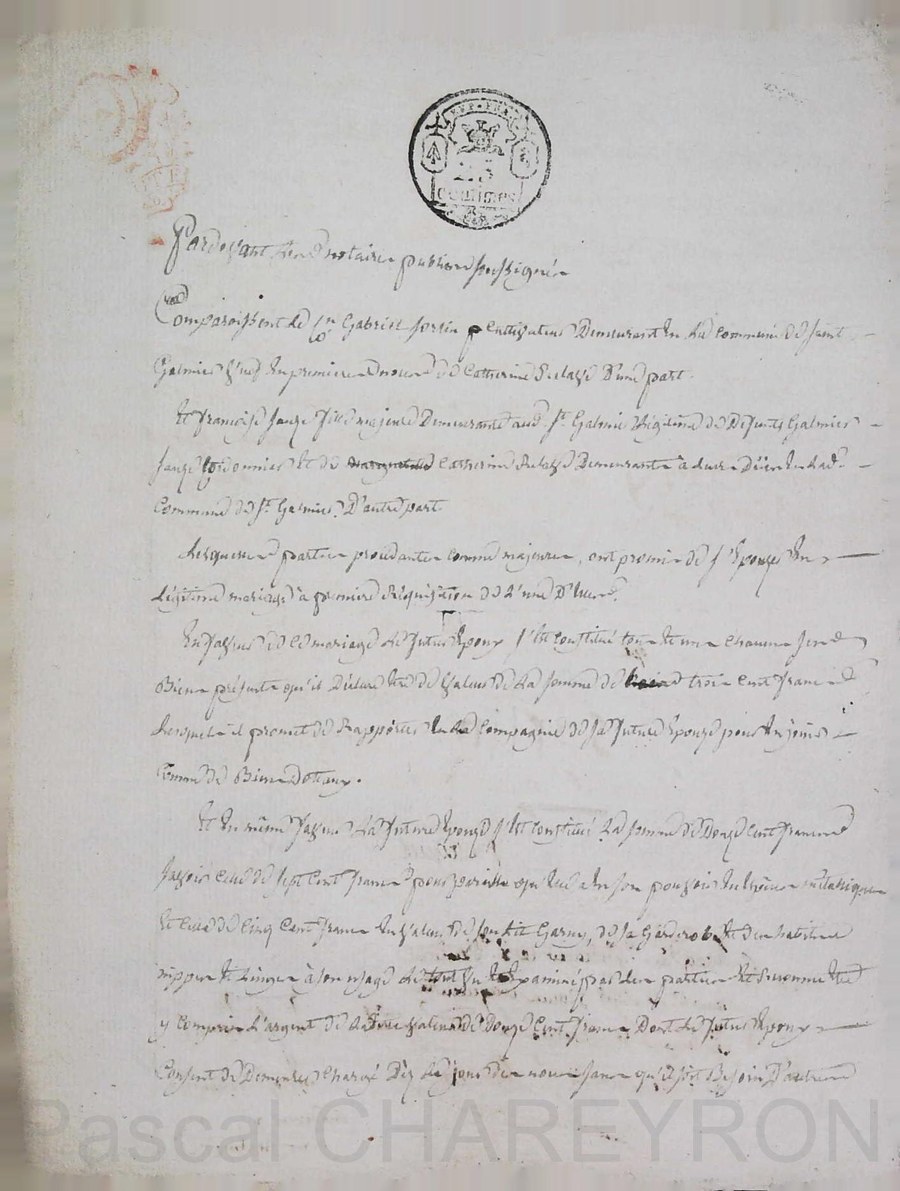 REP. FRA.
25
centimes
Pardevant les notaires publics soussignés
Comparoissent le Cn Gabriel demeurant en la commune de Saint
Galmier veuf en premieres noces de Catherine D'une part.
Et françoise fille majeure Demeurante aud. St Galmier légitime de défunts Galmier
Cordonnier et de Catherine Demeurante à lad.
Commune de St Galmier, D'autre part.
Lesquelles parties procedantes comme majeures, ont promis de s'épouser en
légitime mariage à premiere Réquisition de l'une D'elles.
En faveur de ce mariage le futur époux s'est constitué tous et un chacun ses
Biens présents qu'il Déclare être de valeur de la somme de trois cent francs
lesquels il promet de Rapporter en la Compagnie de sa future épouse pour en jouir
comme de Biens dotaux.
Et en même faveur la future épouse s'est constitué la somme de Douze cent francs
savoir celle de sept cent francs pour pareille qu'elle a en son pouvoir en espèces métalliques
Et celle de Cinq cent francs en valeur de son lit Garny, de sa Garderobe et des habits
nippes et linges à son usage le tout vu et examiné par les parties
y compris l'argent de valeur de Douze cent francs Dont le futur époux
Consent de Demeurer Chargé Dèz le jour des noces sans qu'il soit Besoin D'autre
Pascal CHAREYRON